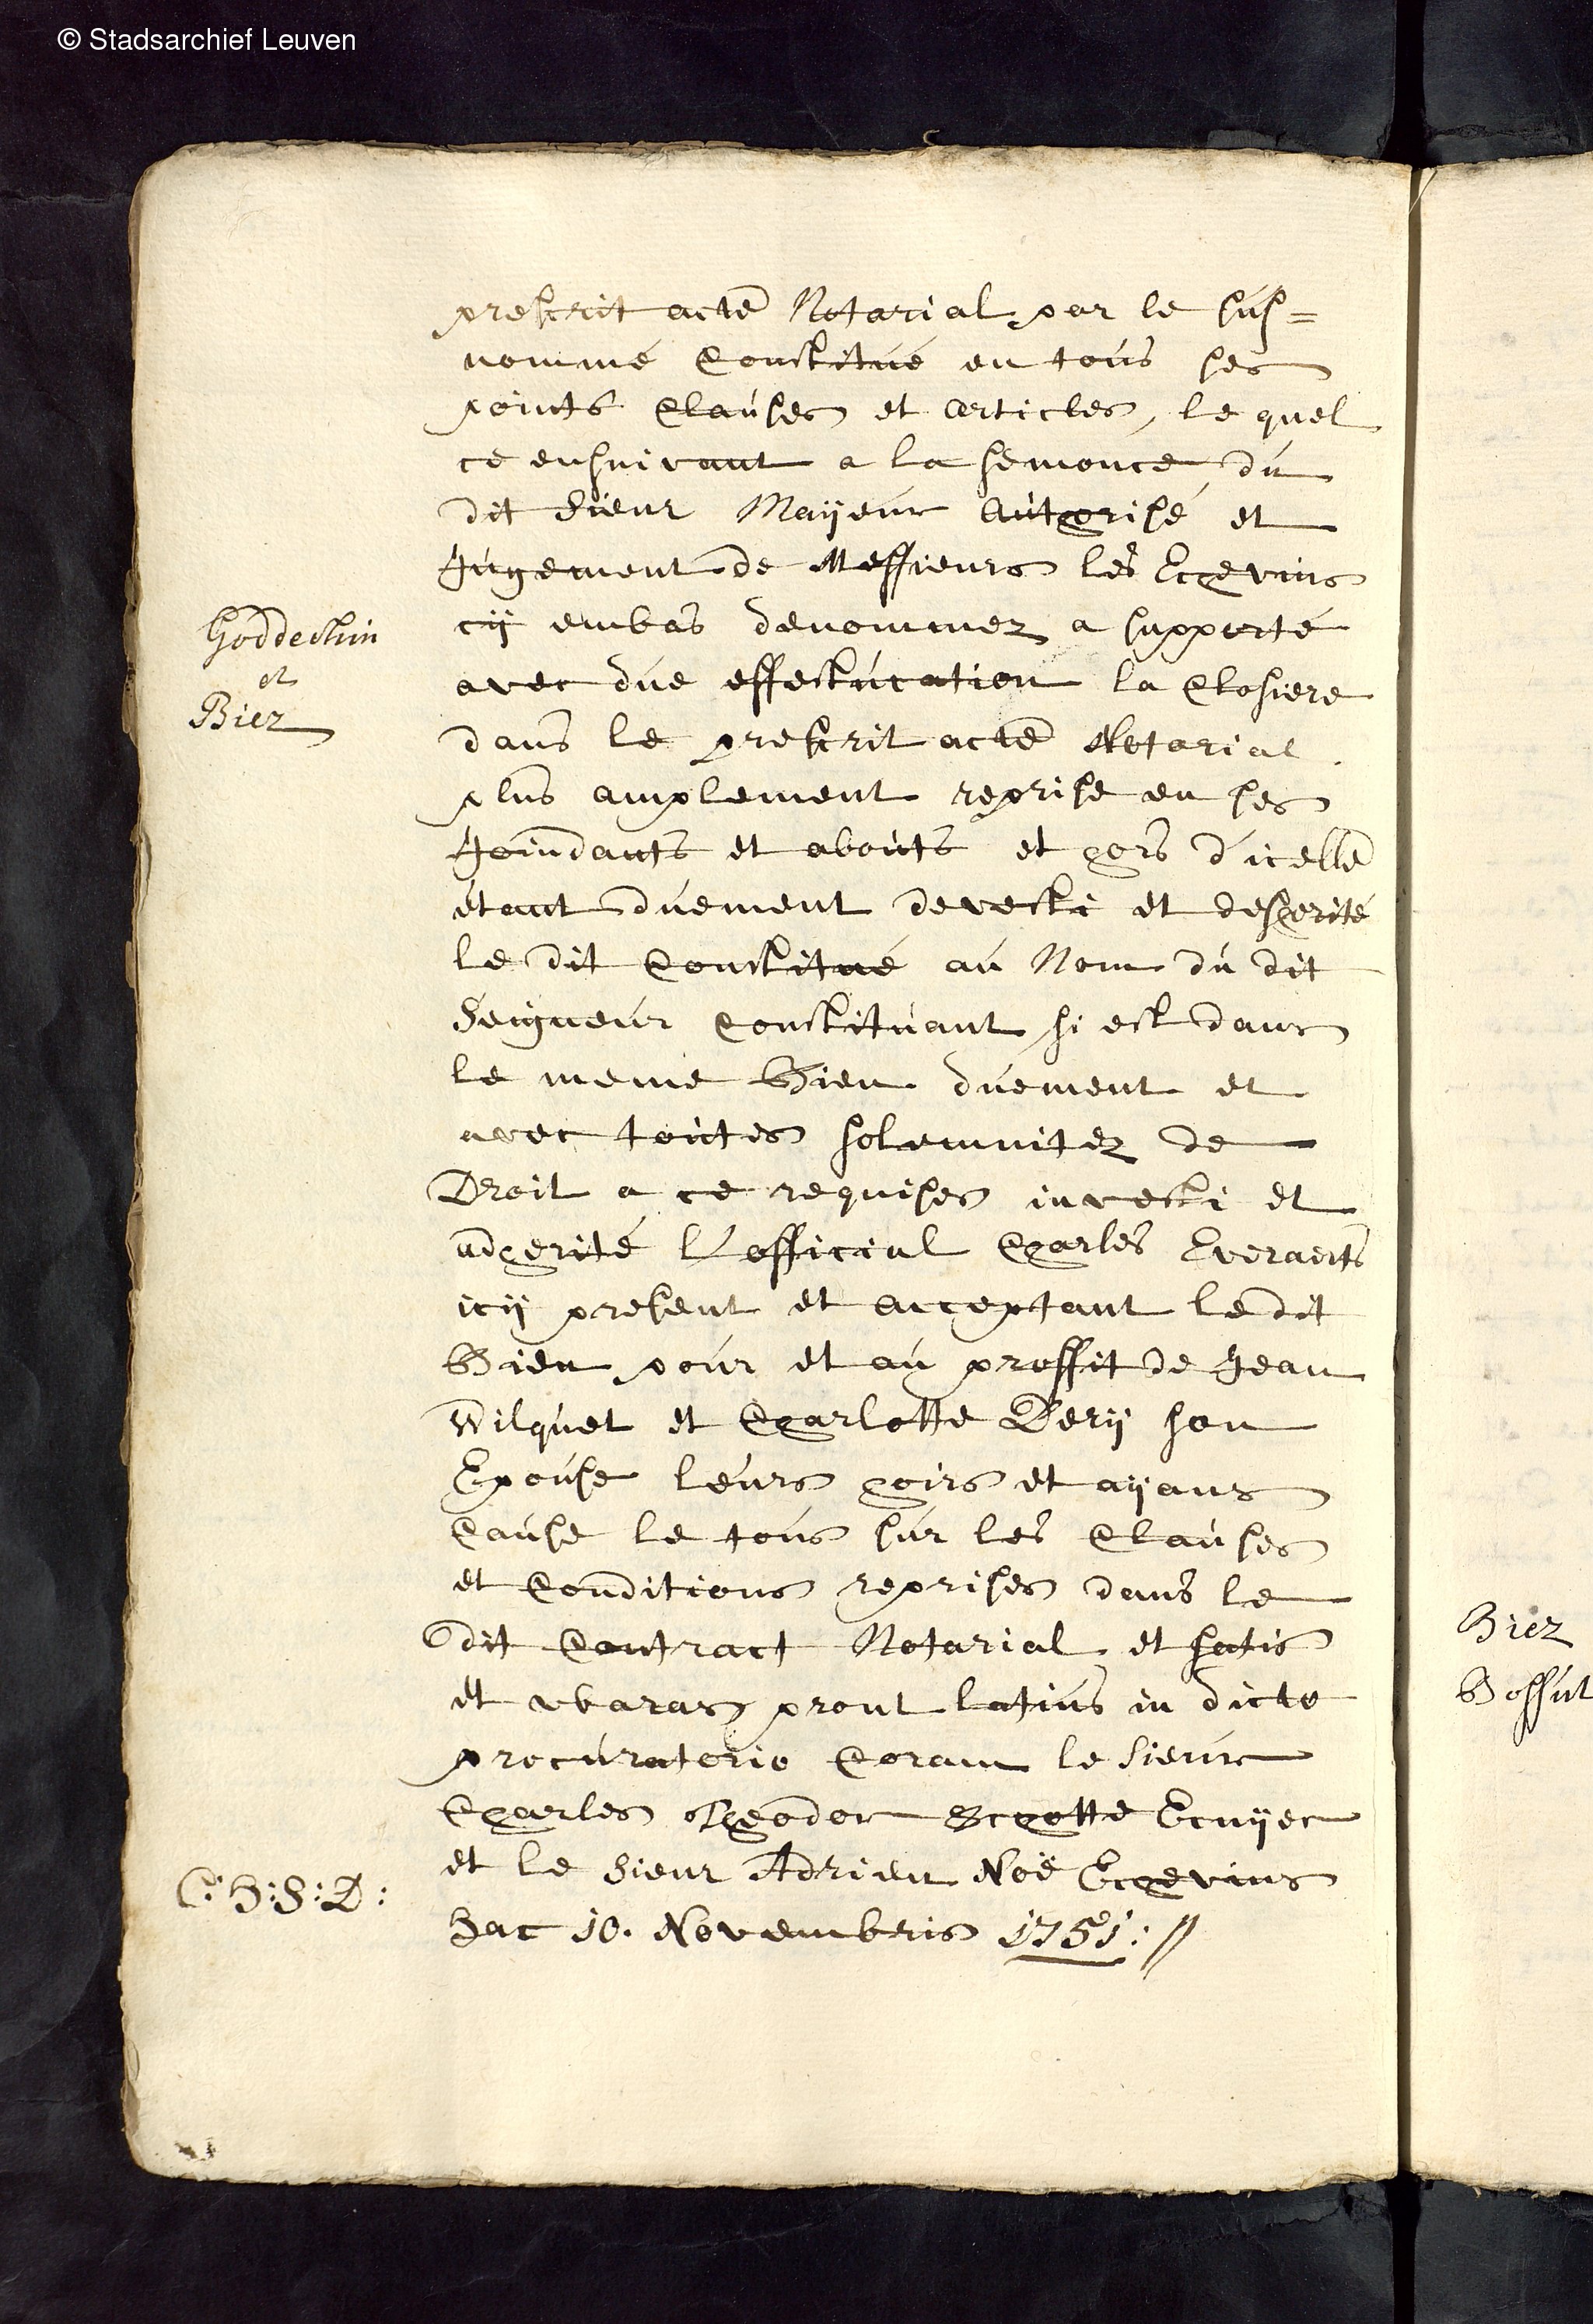 © Stadsarchief Leuven
prescrit acte Notarial par le sus=
nommé Constitué en tous ses
points Clauses et articles, le quel
ce ensuivant a la semonce du
dit Sieur Maÿeur authorisé et
Jugement de Messieurs les Echevins
cÿ embas denommez a supporté
avec düe effestucation la Closiere
dans le prescrit acte Notarial
plus amplement reprise en ses
Joindants et abouts et hors d'icelle
étant duement devesti et desherité
le dit Constitué au Nom du dit
Seigneur Constituant si est dans
le meme Bien duement et
avec toutes solemnitez de
Droit a ce requises investi et
adherité L'official Charles Everaerts
icÿ present et acceptant le dit
Bien pour et au proffit de Jean
Wilquet et Charlotte Derÿ son
Epouse leurs hoirs et aÿans
Cause le tous sur les Clauses
et Conditions reprises dans le
dit Contract Notarial et satis
et waras prout latius in dicto
procuratorio Coram le Sieur
Charles Theodor Schotte Ecuÿer
et le Sieur Adrien Noë Echevins
hac 10. Novembris 1751: //
Goddechin
et
Biez
C: H: S: D:
Biez
Bossut